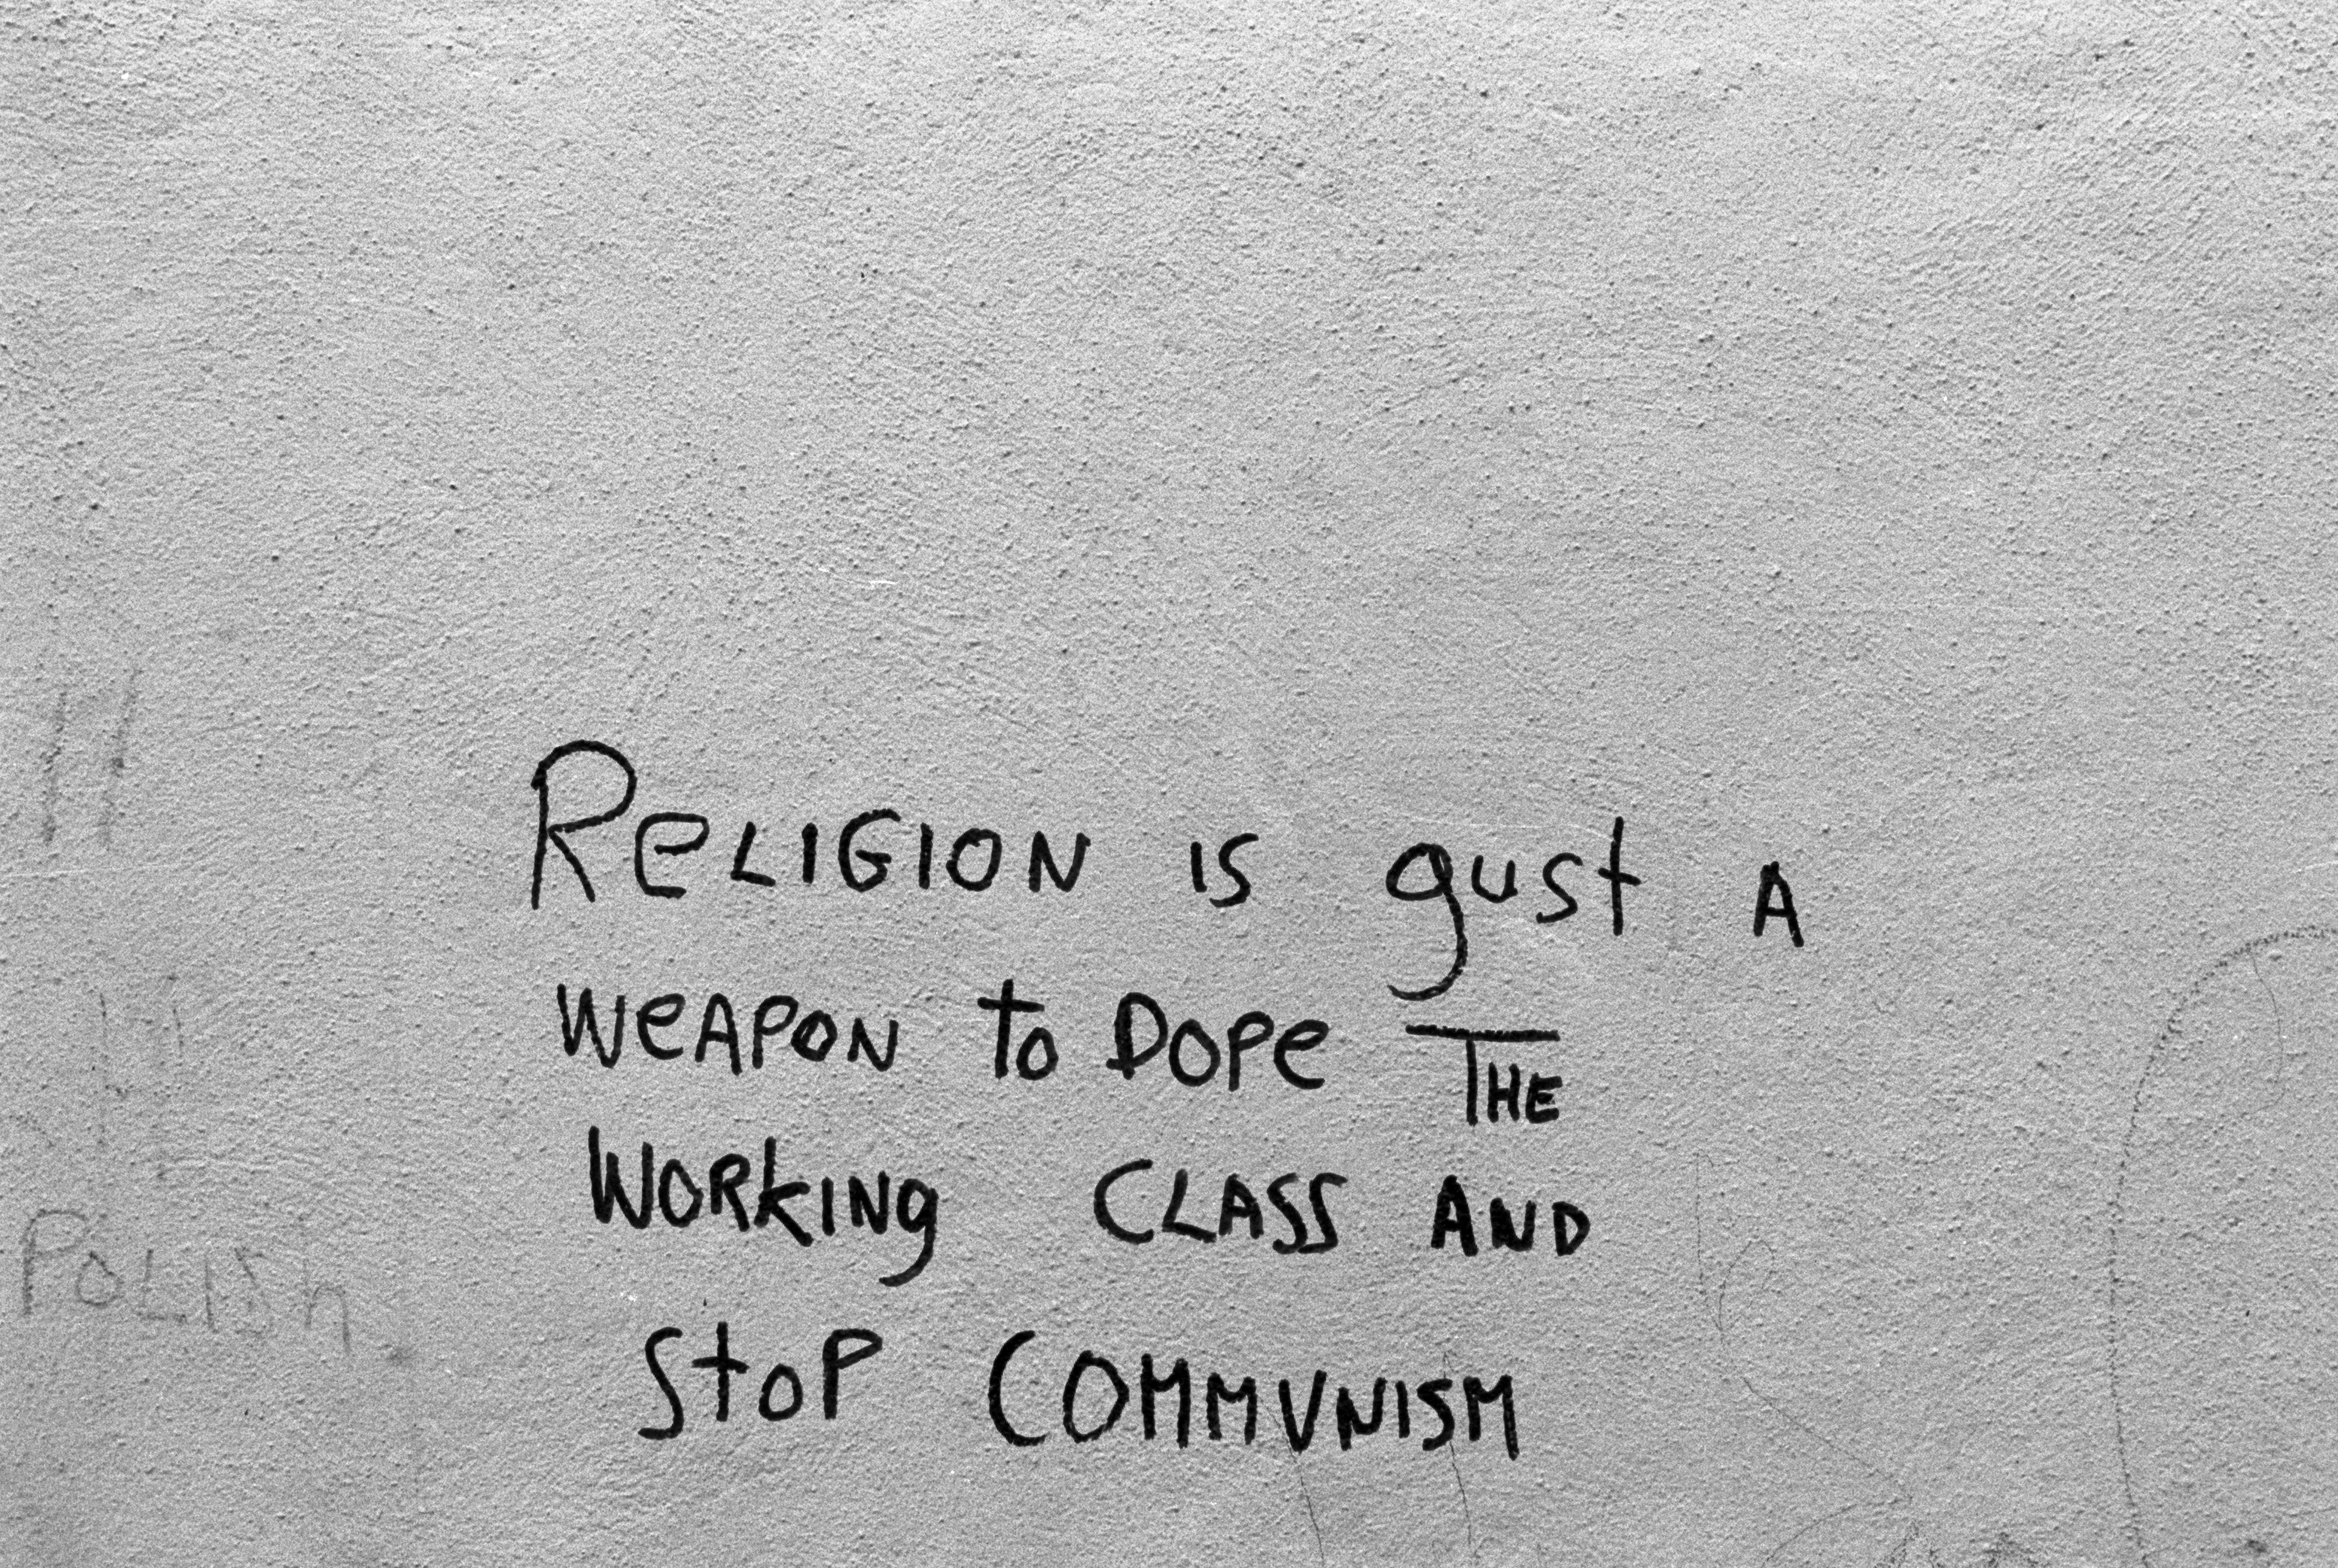 RELIGION IS gust A
WEAPON to DOPE THE
WORKINg CLASS AND
StoP COMMUNISM
POLISh